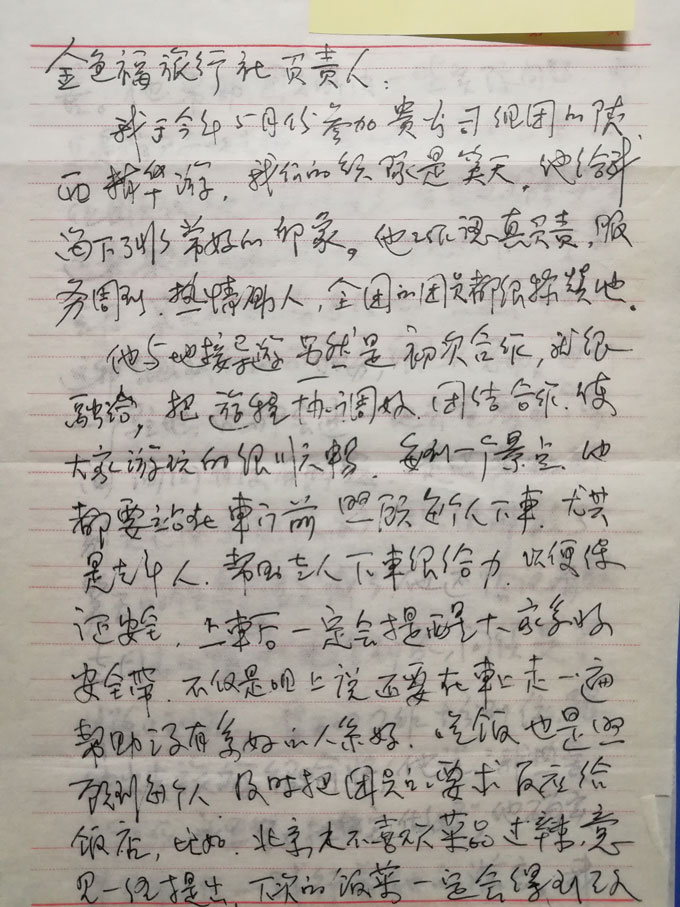 金色福旅行社负责人：
我于今年5月份参加贵公司组团的陕
西精华游，我们的领队是吴天。他给我
留下了非常好的印象。他工作认真负责，服
务周到，热情助人，全团的团员都很称赞他。
他与地接导游虽然是初次合作，就很
融洽，把游程协调好，团结合作，使
大家游玩的很顺畅，每到一个景点，他
都要站在車门前照顾每个人下車，尤其
是老年人，帮助老人下車很给力，以便保
证安全，上車后一定会提醒大家系好
安全带，不仅是咀上说还要在車上走一遍
帮助没有系好的人系好，吃饭也是照
顾到每个人，及时把团员的要求反应给
饭店，比如，北京人不喜欢菜品过辣，意
见一经提出，下次的饭菜一定会得到改